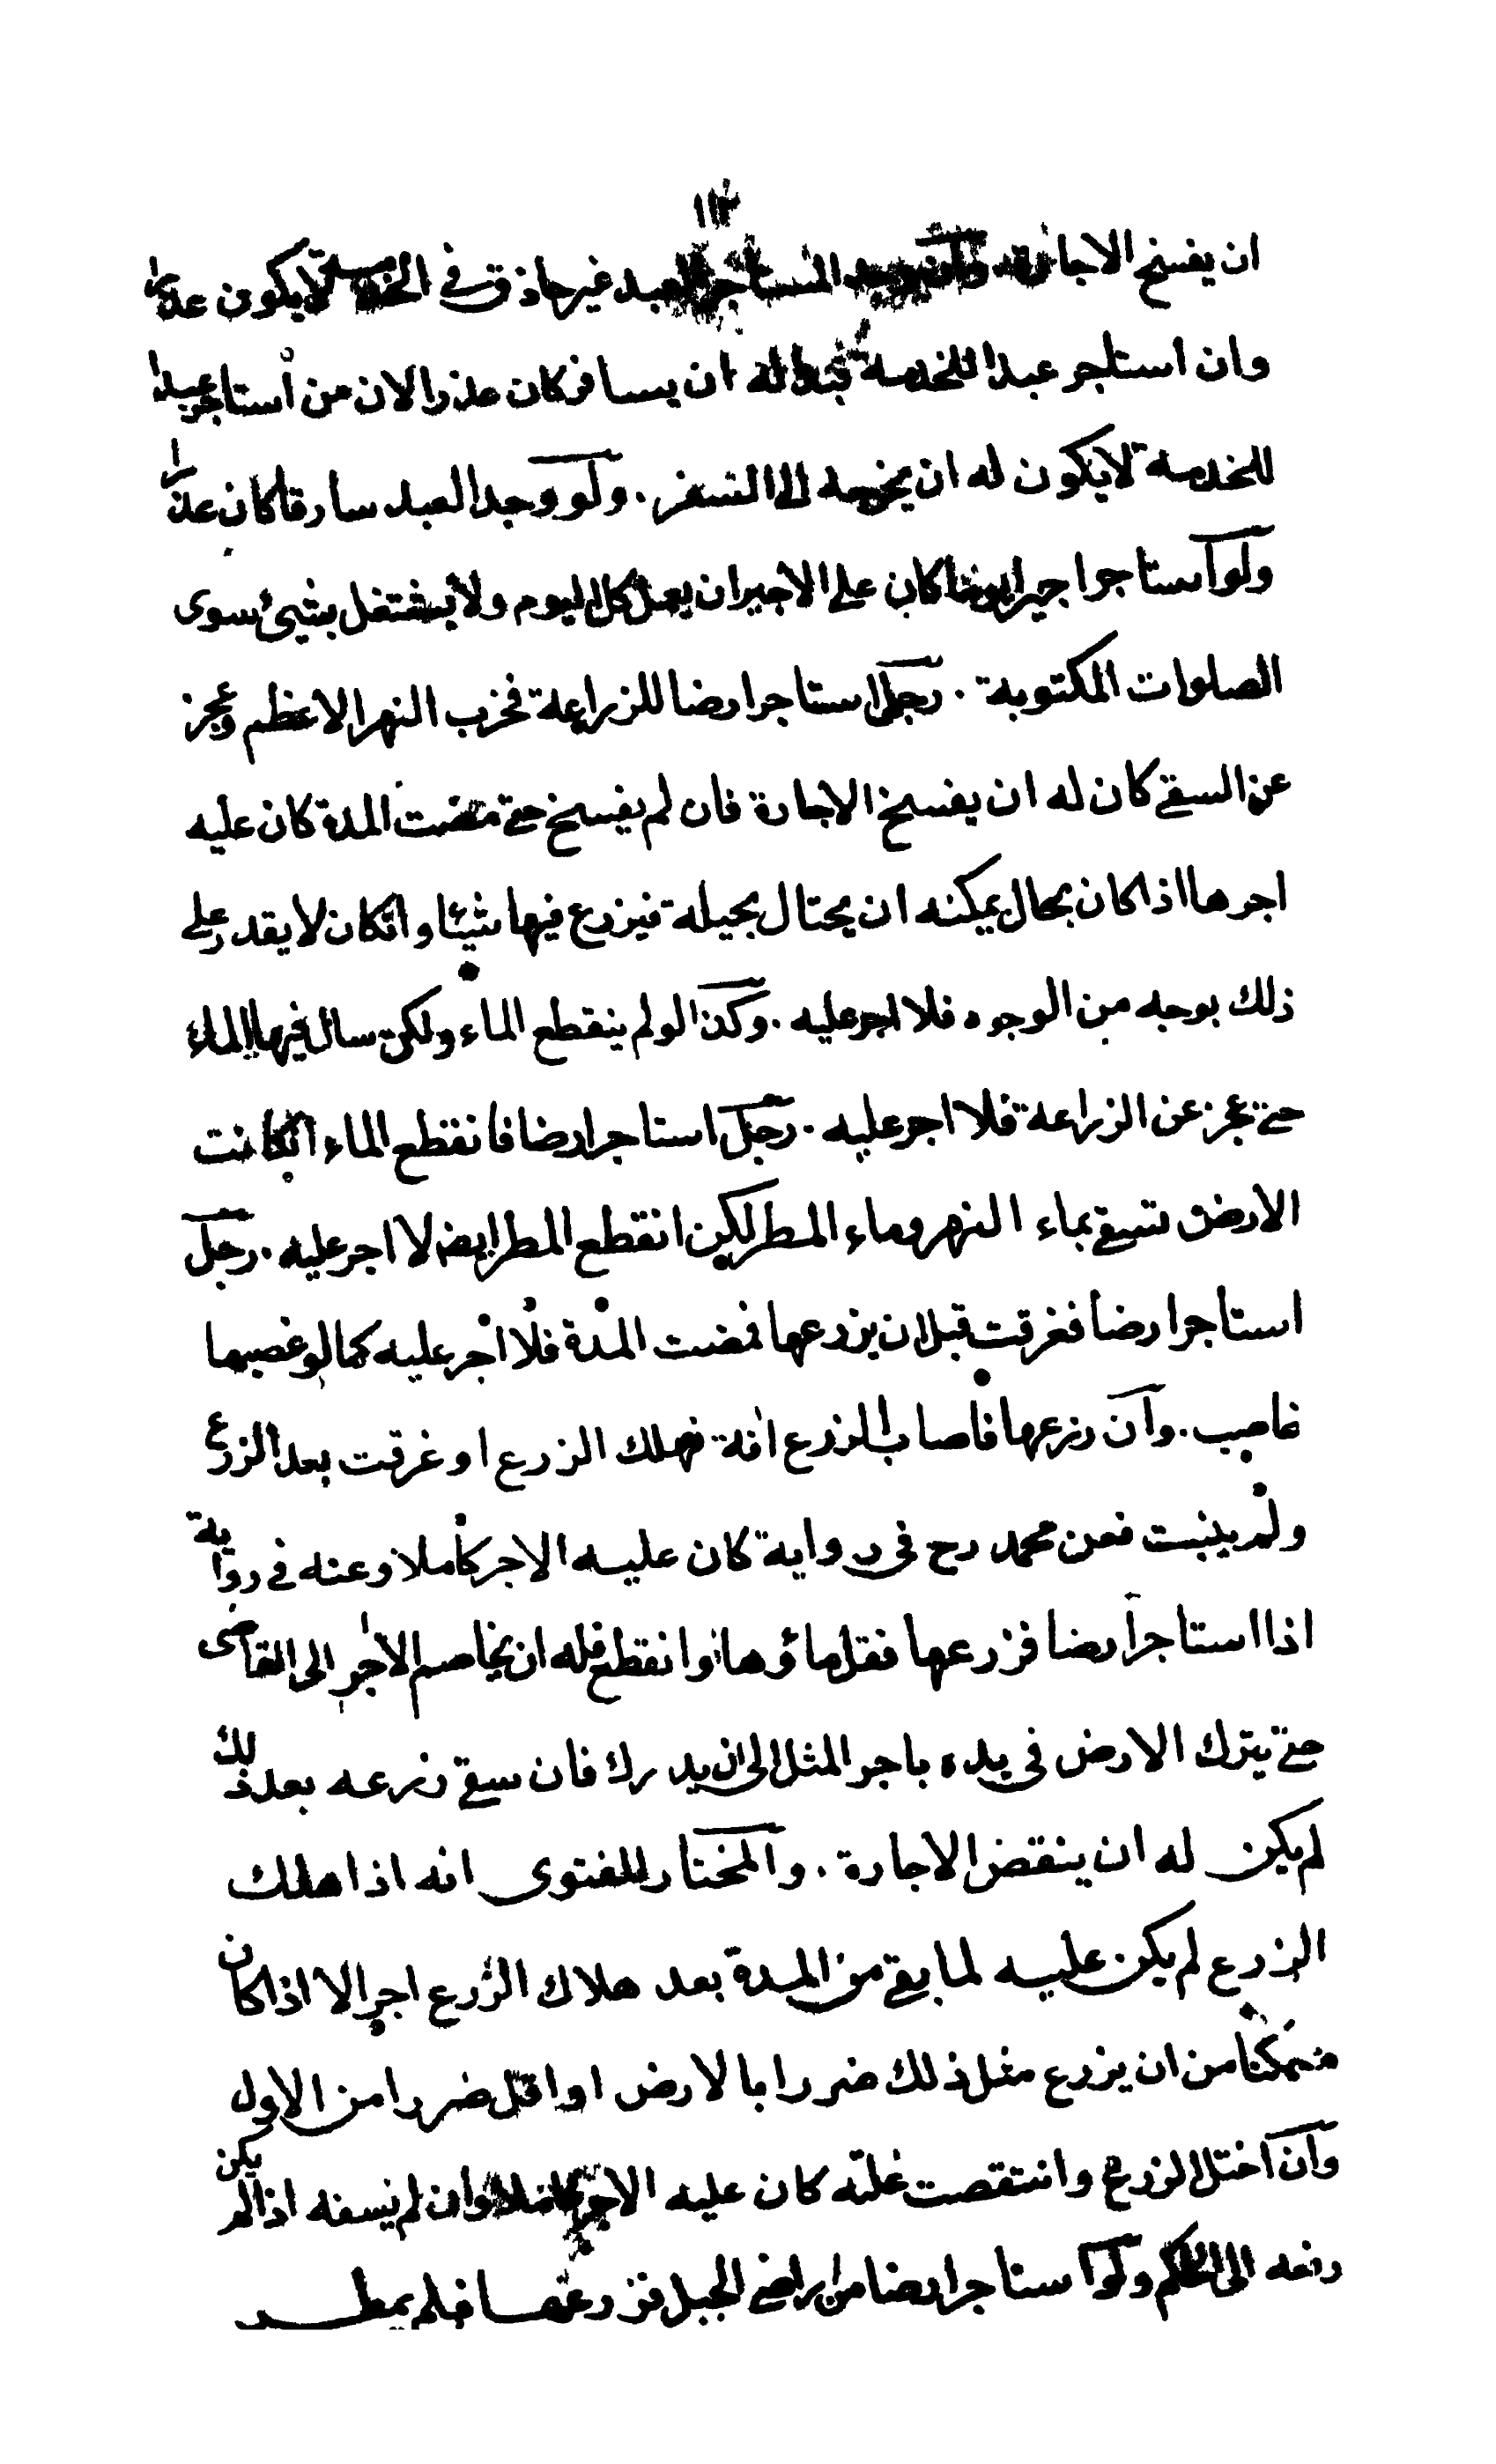 ١١٣
ان يفسخ الاجارة وان وجد المستاجر العبد غير حاذق في الخدمة لا يكون عذرا
وان استاجر عبدا للخدمة فبدا له ان يسافر كان عذرا لان من استاجر عبدا
للخدمة لا يكون له ان يخرجه الى السفر . ولو وجد العبد سارقا كان عذرا
ولو استاجر اجيرا يوما كان على الاجير ان يعمل كل اليوم ولا يشتغل بشيئ سوى
الصلوات المكتوبة . رجل استاجر ارضا للزراعة فخرب النهر الاعظم وعجز
عن السقي كان له ان يفسخ الاجارة فان لم يفسخ حتى مضت المدة كان عليه
اجرها اذا كان بحال يمكنه ان يحتال بحيلة فيزرع فيها شيئا وانكان لا يقدر على
ذلك بوجه من الوجوه فلا اجر عليه . وكذا لو لم ينقطع الماء ولكن سال فيها الماء
حتى عجز عن الزراعة فلا اجر عليه . رجل استاجر ارضا فانقطع الماء انكانت
الارض تسقى بماء النهر وماء المطر لكن انقطع المطر ايضا لا اجر عليه . رجل
استاجر ارضا فغرقت قبل ان يزرعها فمضت المدة فلا اجر عليه كما لو غصبها
غاصب . وان زرعها فاصاب الزرع افة فهلك الزرع او غرقت بعد الزرع
ولم ينبت فعن محمد رح في رواية كان عليه الاجر كاملا وعنه في رواية
اذا استاجر ارضا فزرعها فقل ماؤها او انقطع فله ان يخاصم الاجر الى القاضى
حتى يترك الارض في يده باجر المثل الى ان يدرك فان سقى زرعه بعد ذلك
لم يكن له ان ينقض الاجارة . والمختار للفتوى انه اذا هلك
الزرع لم يكن عليه لما بقي من المدة بعد هلاك الزرع اجر الا اذا كان
متمكنا من ان يزرع مثل ذلك ضررا بالارض او اقل ضررا من الاول
وان اختل الزرع وانتقصت غلته كان عليه الاجر كاملا وان لم يسقه اذا لم يكن
رفعه الى الحاكم ولو استاجر ارضا من اراضي الجبل فزرعها فلم يمطر